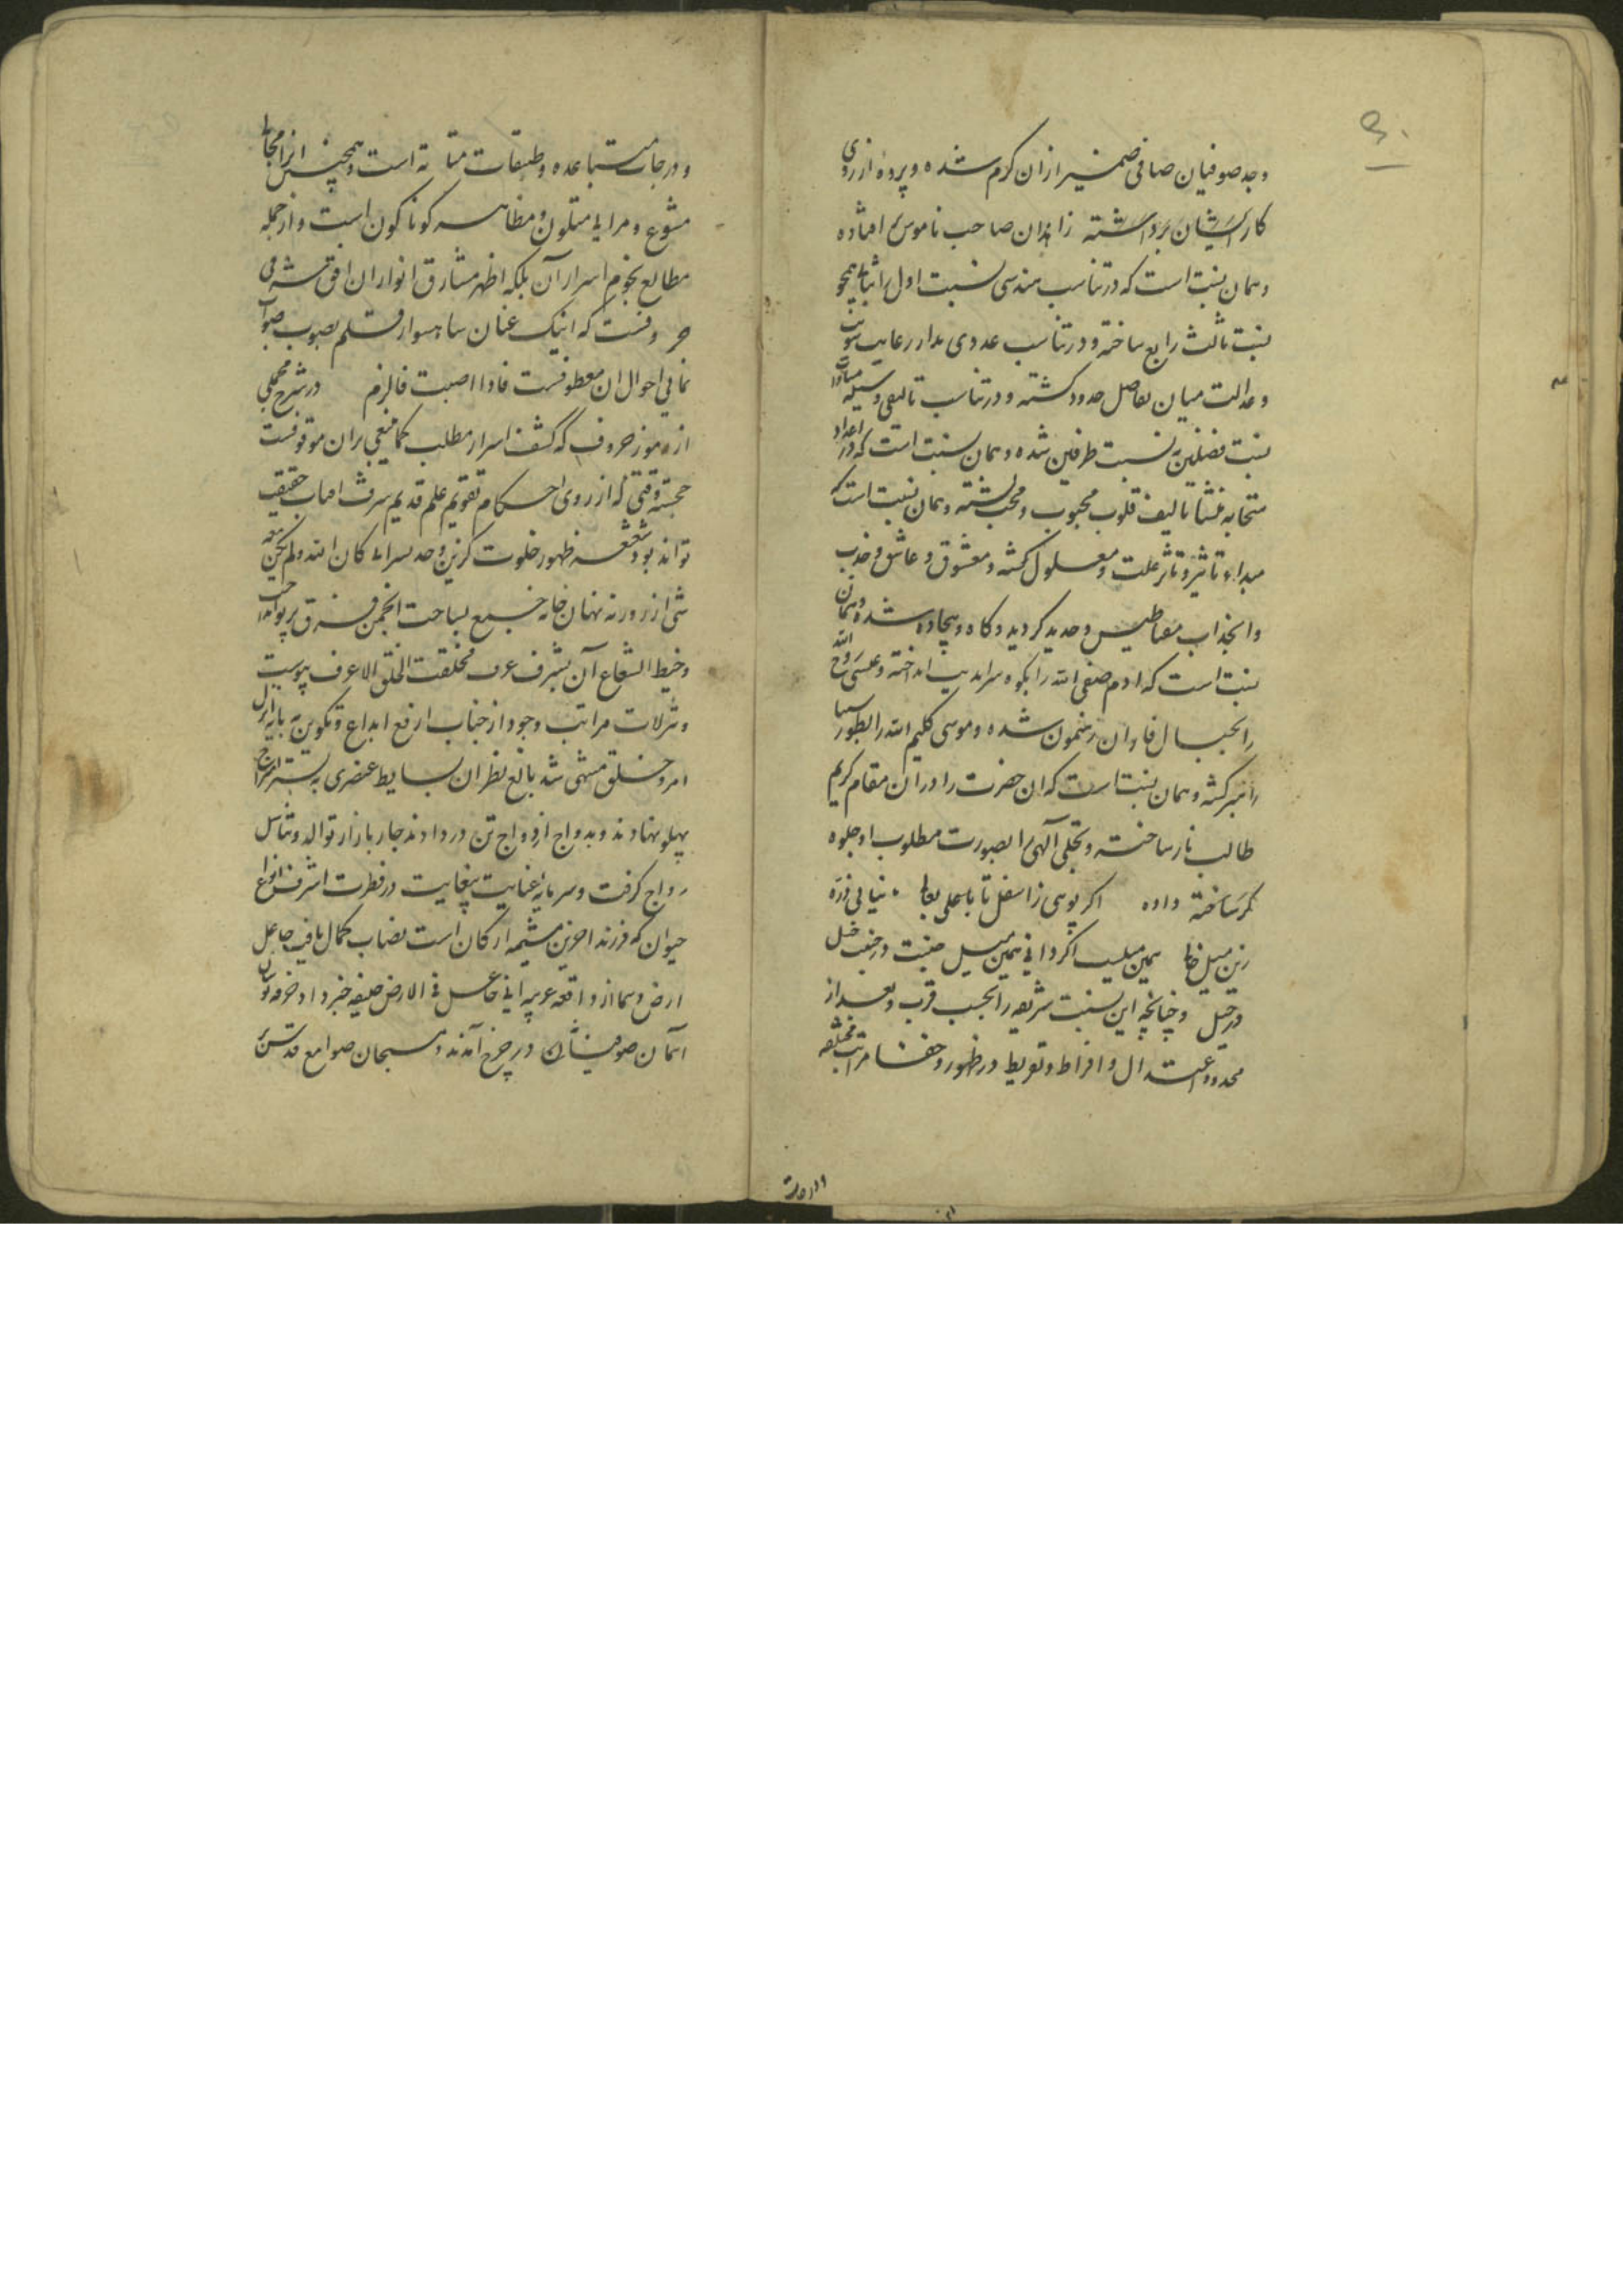 وجد صوفیان صافی ضمیر ازان کرم شده و پرده از روی
کار ایشان برداشته زاهدان صاحب ناموس افتاده
و همان نسبت است که در تناسب هندسی نسبت اول را بثانی همچو
نسبت ثالث رابع ساخته و در تناسب عددی مدار رعایت سویت
و عدالت میان تفاصل حدود کشته و در تناسب تالیفی وسیله مساوات
نسبت فضلین به نسبت طرفین شده و همان نسبت است که در اعداد
متحابه منشا تالیف قلوب محبوب و محب کشته و همان نسبت است که
مبداء تاثیر و تاثر علت و معلول کشته و معشوق و عاشق و جذب
و انجذاب مغناطیس و حدید کردیده و کاه و بیجاده شده و همان
نسبت است که ادم صفی الله را بکوه سراندیب انداخته و عیسی روح الله
را بجبال فاران رهنمون شده و موسی کلیم الله را بطور سینا
راهبر کشته و همان نسبت است که ان حضرت را در ان مقام کریم
طالب نار ساخته و تجلی آلهی را بصورت مطلوب او جلوه
کر ساخته داده اکر پویی ز اسفل تا باعلی نیابی ذره
زین میل خالی همین میلست اکر دانی همین میل جنیبت در جنیبت خیل
در خیل و چنانچه این نسبت شریفه را بحسب قرب و بعد از
حدود اعتدال و افراط و تفریط در ظهور و خفا مراتب مختلفه
و درجات
و درجات متباعده و طبقات است و همچنین انرا مجالی
متنوع و مرایای متلون و مظاهر کوناکون است و از جمله
مطالع نجوم اسرار آن بلکه اظهر مشارق انوار ان افق شرقی
حروفست که اینک عنان شاهسوار قلم بصوب صواب
نمای احوال ان معطوفست فاذا اصبت فالزم در شرح مجملی
از رموز حروف که کشف اسرار مطلب کما ینبغی بران موقوفست
خجسته وقتی که از روی احکام تقویم علم قدیم شرف افتاب حقیقت
تواند بود شعشعه ظهور خلوت کزین وحد سرای کان الله و لم یکن معه
شی از روزنه نهان خانه جمع بساحت انجمن فرق پرتو انداخت
و خیط الشعاع آن بشرف عرف فخلقت الخلق لاعرف پیوست
و تنزلات مراتب وجود از جناب ارفع ابداع و تکوین به پایه انزل
امر و خلق منتهی شد بالغ نظران بسایط عنصری به بستر امتزاج
پهلو نهادند و به دواج ازدواج تن در دادند چار بازار توالد و تناسل
رواج کرفت و سرمایه عنایت بیغایت در فطرت اشرف انواع
حیوان که فرزند اخرین مشیمه ارکان است نصاب کمال یافت جاعل
ارض و سما از واقعه غریبه انی جاعل فی الارض خلیفه خبر داد خرقه پوشان
آسمان صوفیشان در چرخ آمدند و مسبحان صوامع قدس